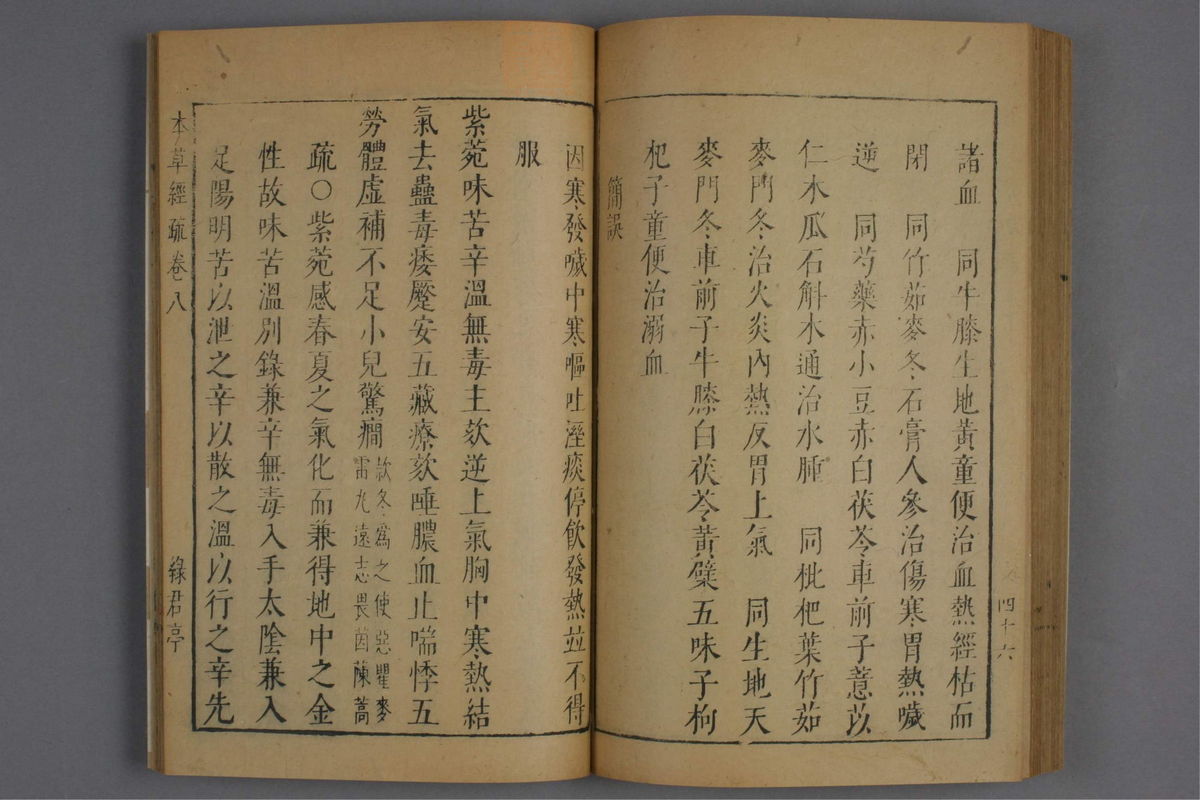 諸血　同牛膝生地黃童便治血熱經枯而
閉　同竹茹麥冬石膏人參治傷寒胃熱噦
逆　同芍藥赤小豆赤白茯苓車前子薏苡
仁木瓜石斛木通治水腫　同枇杷葉竹茹
麥門冬治火炎內熱反胃上氣　同生地天
麥門冬車前子牛膝白茯苓黃蘗五味子枸
杞子童便治溺血
簡誤
因寒發噦中寒嘔吐溼痰停飲發熱並不得
服
紫菀味苦辛溫無毒主欬逆上氣胸中寒熱結
氣去蠱毒痿蹷安五藏療欬唾膿血止喘悸五
勞體虛補不足小兒驚癎
款冬為之使惡瞿麥
雷丸遠志畏茵蔯蒿
疏○紫菀感春夏之氣化而兼得地中之金
性故味苦溫別錄兼辛無毒入手太陰兼入
足陽明苦以泄之辛以散之溫以行之辛先
本草經疏卷八
綠君亭
四十六